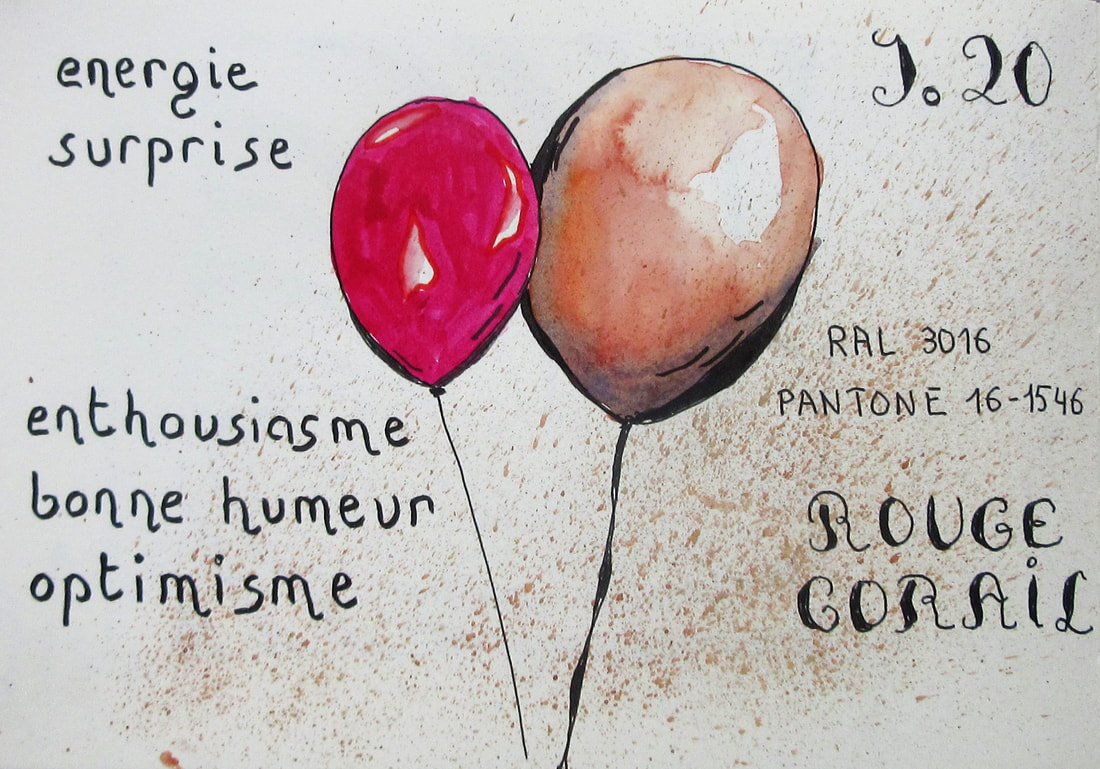 energie
surprise
J. 20
RAL 3016
PANTONE 16-1546
enthousiasme
bonne humeur
optimisme
ROUGE
CORAIL